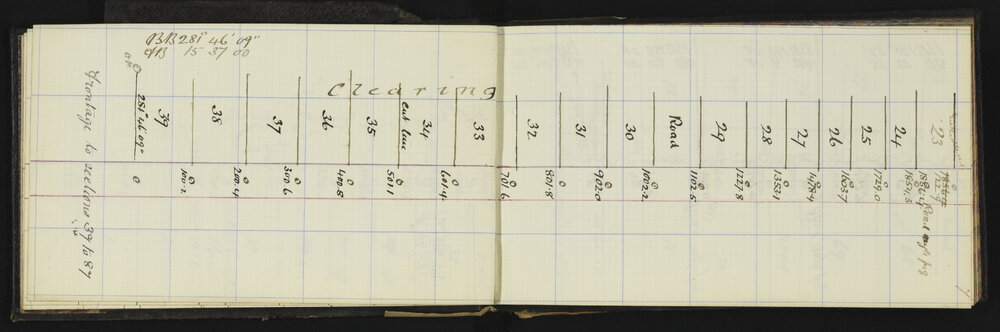 BB 281° 46' 09"
15 37 00
Clearing
Frontage to sections 39 to 87
281° 46' 09"
39
38
37
36
35
cut line
34
33
32
31
30
Road
29
28
27
26
25
24
23
0
100.2
200.4
300.6
400.8
501.1
601.4
701.6
801.8
902.0
1002.2
1102.5
1227.8
1353.1
1478.4
1603.7
1729.0
1854.3
Road
peg